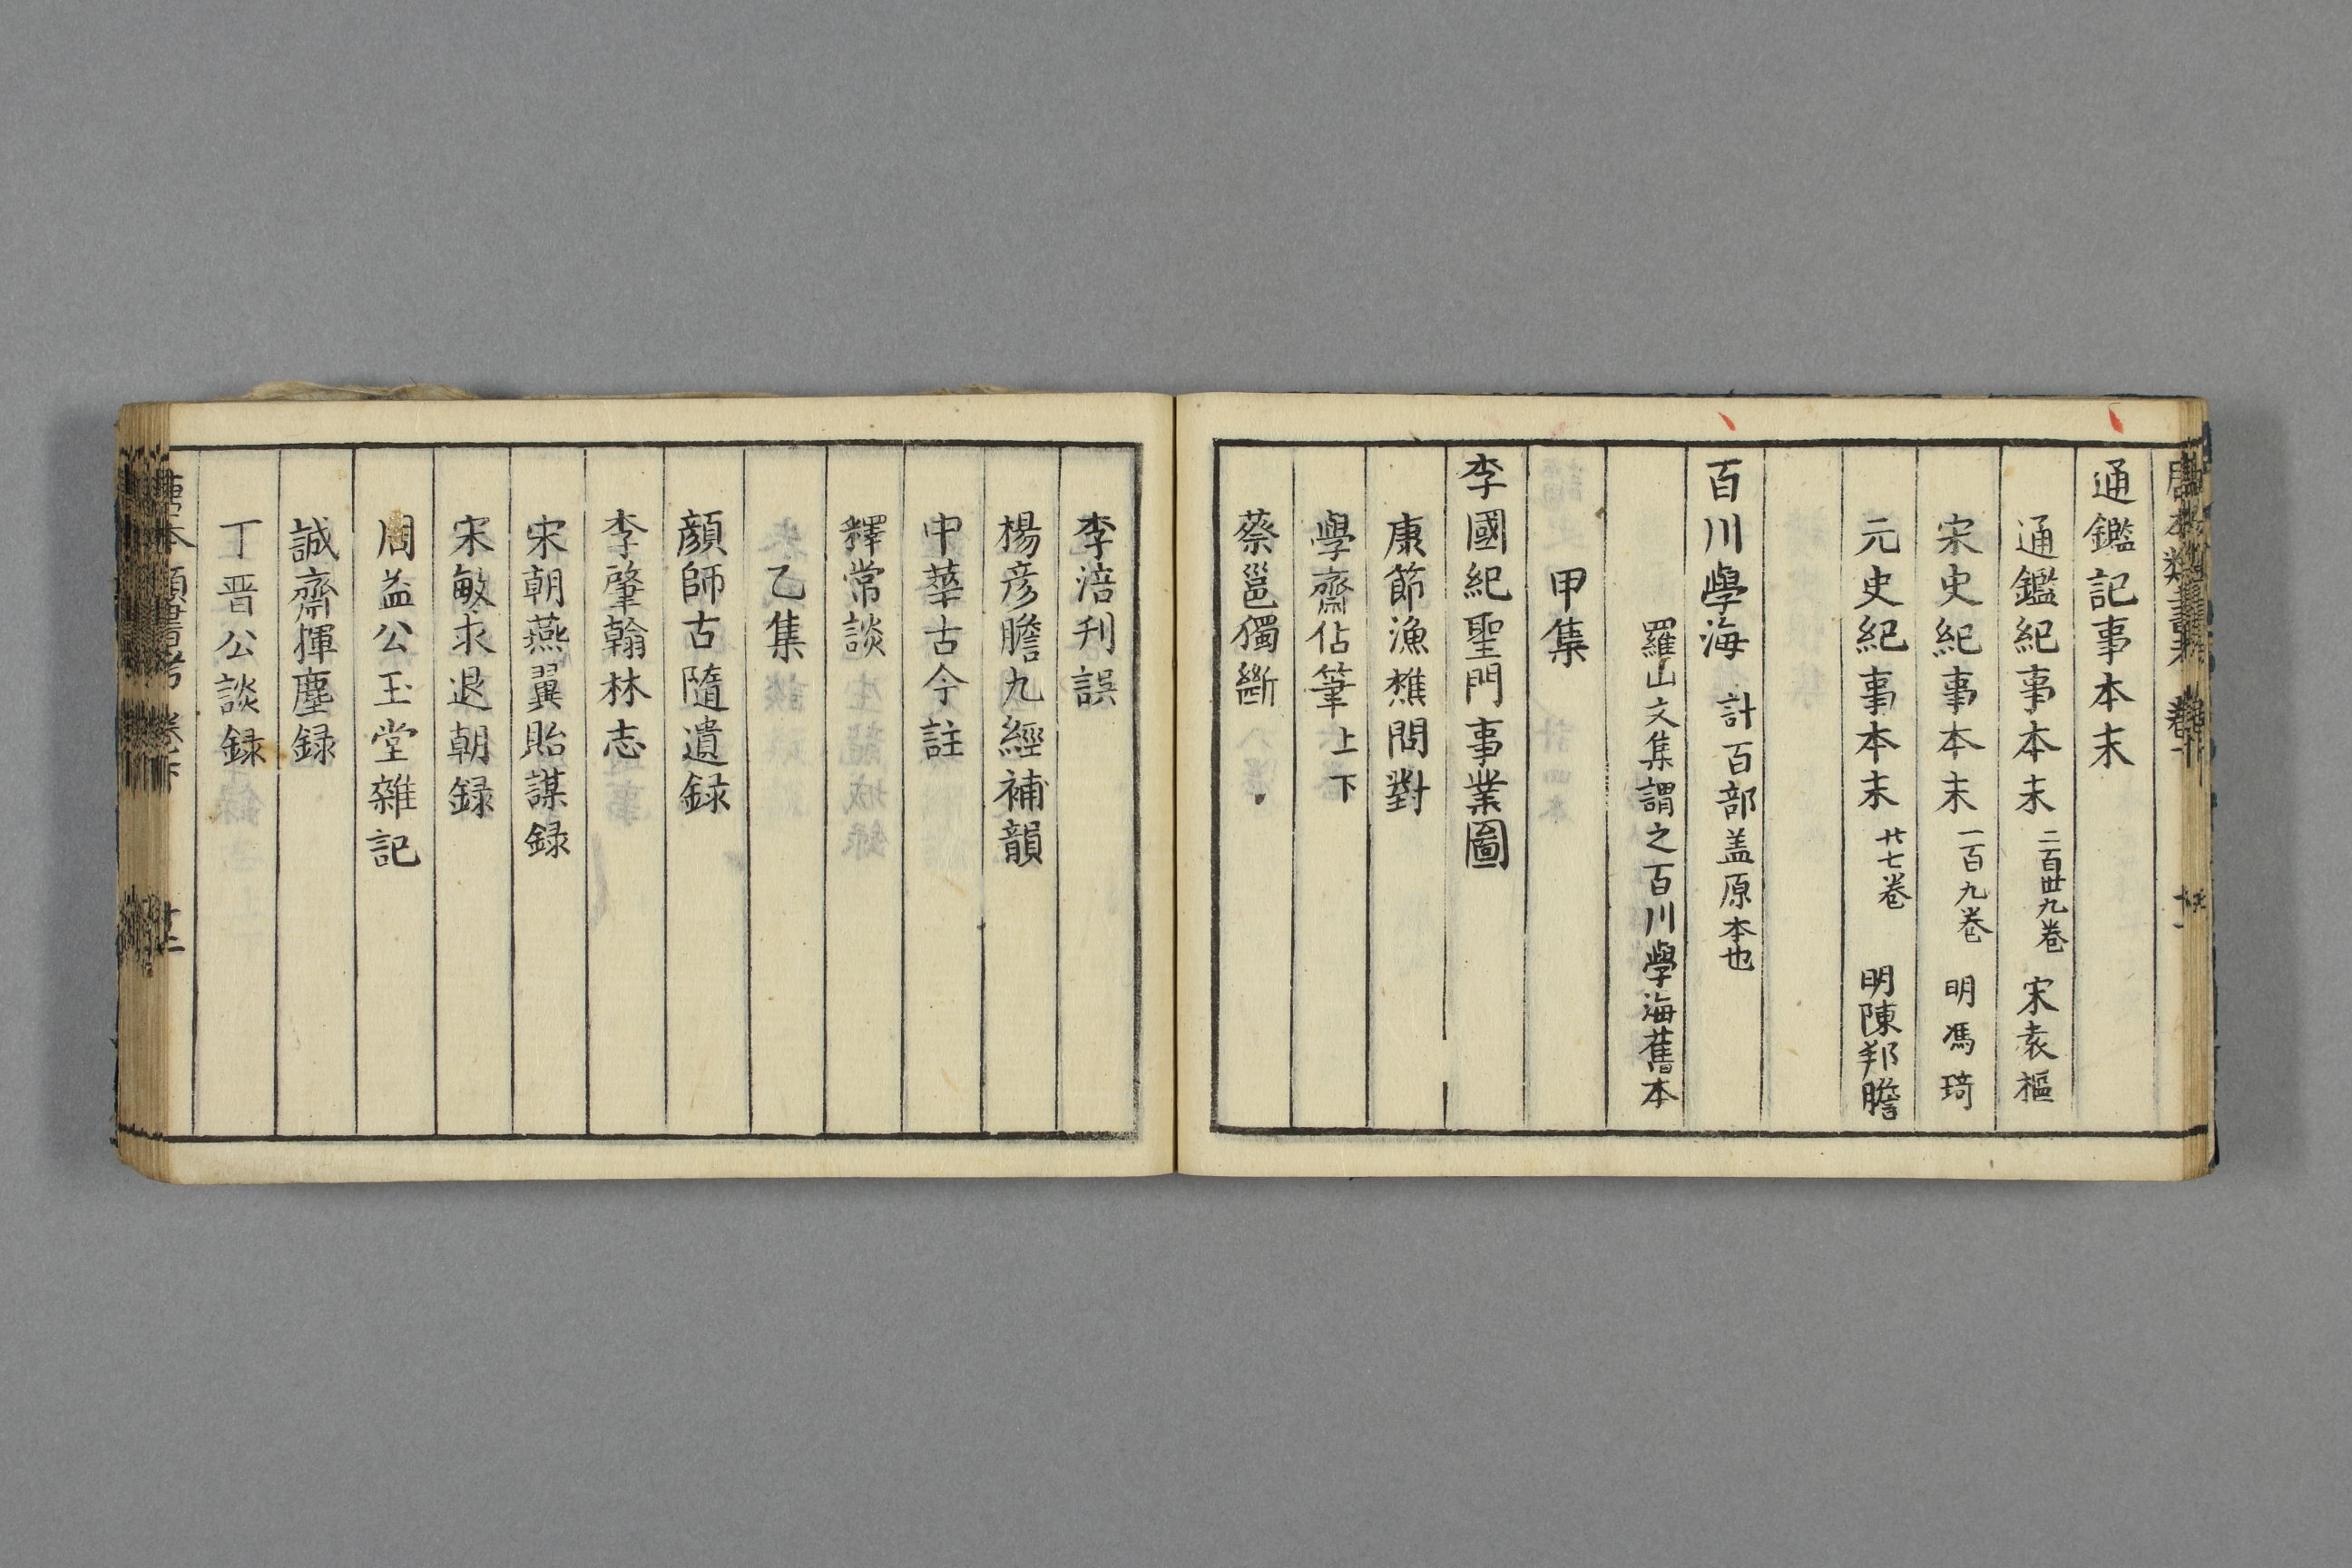 通鑑記事本末
通鑑紀事本末 二百卌九巻 宋袁樞
宋史紀事本末 一百九巻 明馮琦
元史紀事本末 廿七巻 明陳邦瞻
百川學海 計百部盖原本也
羅山文集謂之百川學海舊本
甲集
李國紀聖門事業圖
康節漁樵問對
學齋佔筆 上下
蔡邕獨斷
李涪刋誤
楊彦瞻九經補韻
中華古今註
釋常談
乙集
顔師古隨遺録
李肇翰林志
宋朝燕翼貽謀録
宋敏求退朝録
周益公玉堂雜記
誠齋揮塵録
丁晋公談録